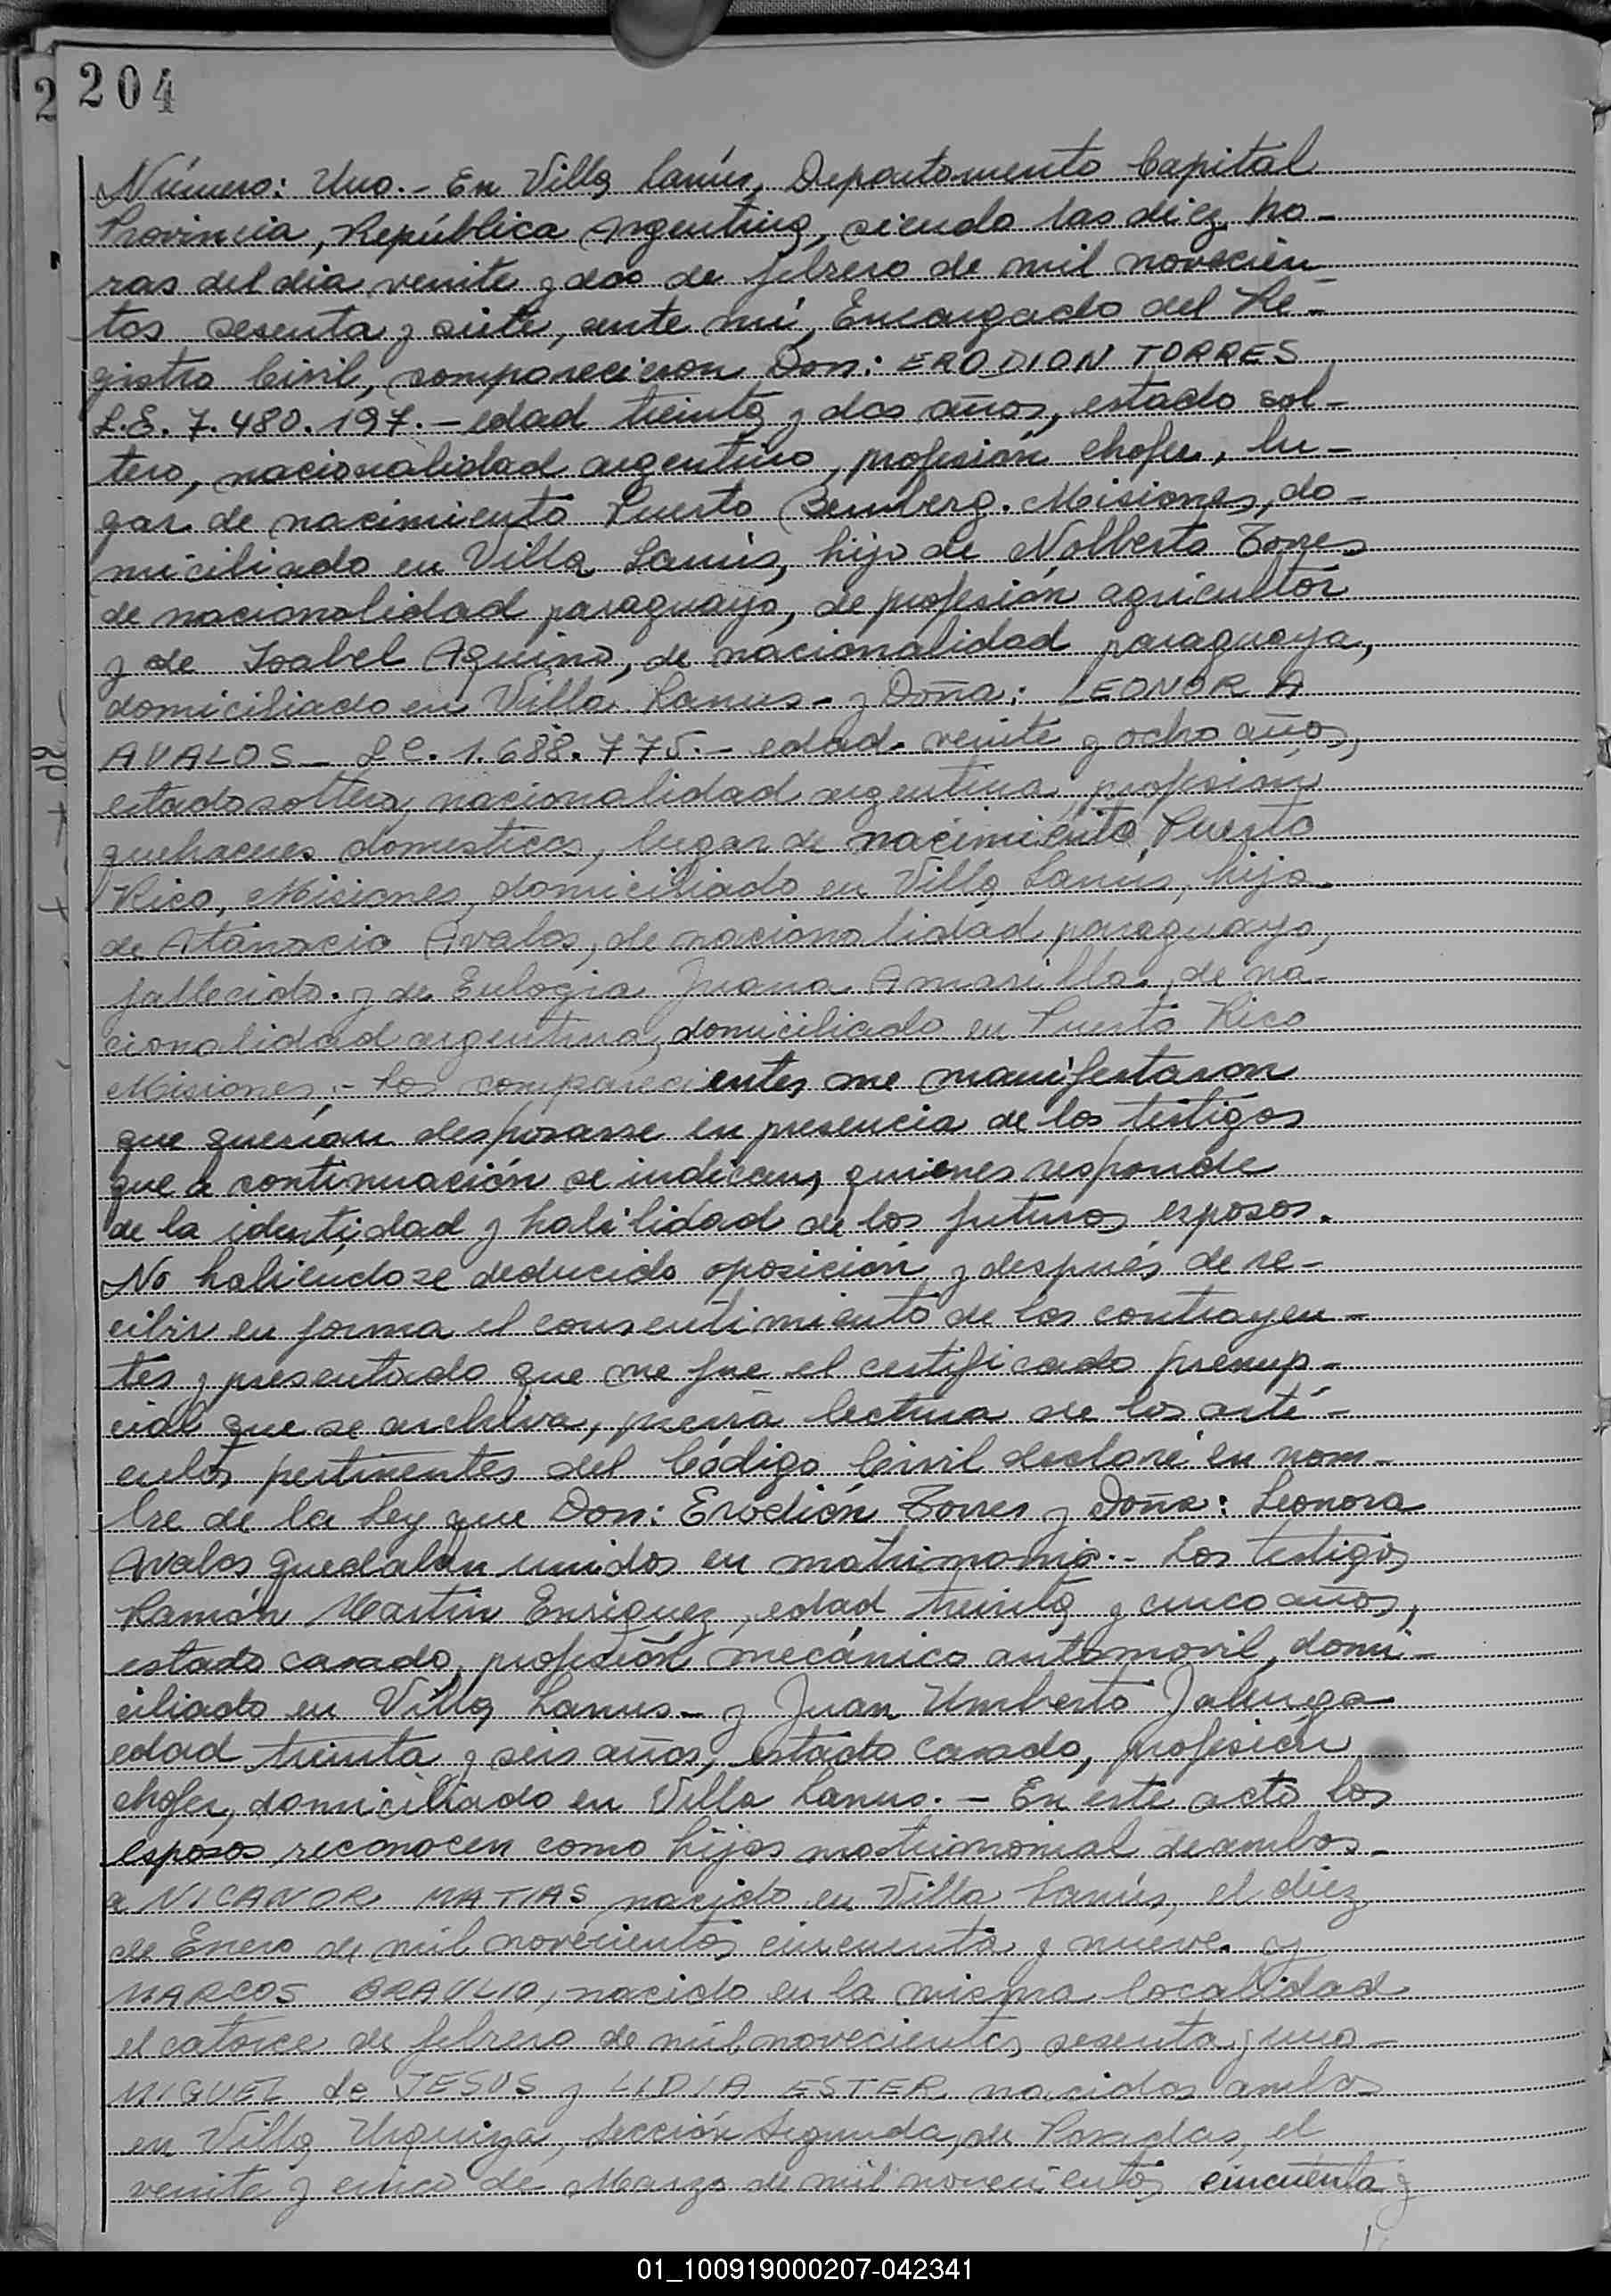 204
Número: Uno.- En Villa Lanús, Departamento Capital
Provincia, República Argentina, siendo las diez ho-
ras del día veinte y dos de febrero de mil novecien-
tos sesenta y siete, ante mí, Encargado del Re-
gistro Civil, comparecieron Don: ERODION TORRES
L.E. 7.480.197.- edad treinta y dos años, estado sol-
tero, nacionalidad argentino, profesión chofer, lu-
gar de nacimiento Puerto Bemberg. Misiones, do-
miciliado en Villa Lanús, hijo de Nolberto Torres
de nacionalidad paraguayo, de profesión agricultor
y de Isabel Aquino, de nacionalidad paraguaya,
domiciliado en Villa Lanus - y Doña: LEONOR A
AVALOS - L C. 1.688.775.- edad veinte y ocho años,
estado soltera, nacionalidad argentina, profesión
quehaceres domesticos, lugar de nacimiento Puerto
Rico, Misiones, domiciliado en Villa Lanús, hija
de Atanacio Avalos, de nacionalidad paraguayo,
fallecido. y de Eulogia Juana Amarilla, de na-
cionalidad argentina, domiciliado en Puerto Rico
Misiones.- Los comparecientes me manifestaron
que querían desposarse en presencia de los testigos
que a continuación se indican, quienes responde
de la identidad y habilidad de los futuros esposos.
No habiendose deducido oposición y después de re-
cibir en forma el consentimiento de los contrayen-
tes y presentado que me fue el certificado prenup-
cial que se archiva, previa lectura de los artí-
culos pertinentes del Código Civil declaré en nom-
bre de la Ley que Don: Erodión Torres y Doña: Leonora
Avalos quedaban unidos en matrimonio.- Los testigos
Ramón Martin Enriquez, edad treinta y cinco años,
estado casado, profesión mecánico automovil, domi-
ciliado en Villa Lanus - y Juan Umberto
edad treinta y seis años, estado casado, profesión
chofer, domiciliado en Villa Lanus. - En este acto los
esposos reconocen como hijos matrimonial de ambos
a NICANOR MATIAS nacido en Villa Lanús, el diez
de Enero de mil novecientos cincuenta y nueve. y
MARCOS BRAULIO, nacido en la misma localidad
el catorce de febrero de mil novecientos sesenta y uno -
MIGUEL de JESUS y LIDIA ESTER nacidos ambos
en Villa Urquiza, Sección Segunda, de Posadas, el
veinte y cinco de Marzo de mil novecientos cincuenta y
01_100919000207-042341